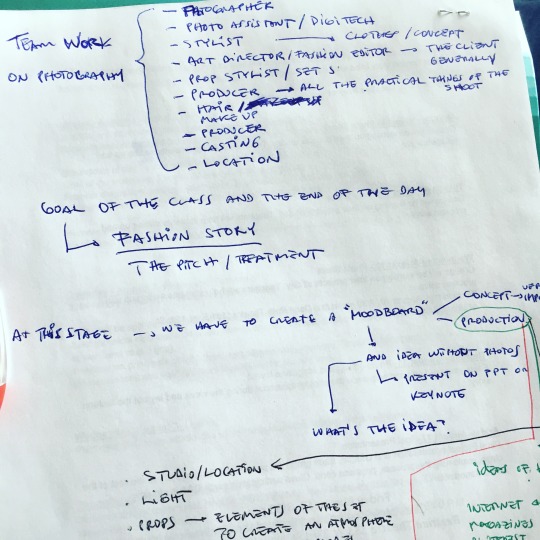 TEAM WORK
ON PHOTOGRAPHY
- PHOTOGRAPHER
- PHOTO ASSISTENT / DIGITECH
- STYLIST → CLOTHES / CONCEPT
- ART DIRECTOR / FASHION EDITOR → THE CLIENT
GENERALLY
- PROP STYLIST / SET S.
- PRODUCER → ALL THE PRACTICAL THINGS OF THE
SHOOT
- HAIR /
MAKE UP
- PRODUCER
- CASTING
- LOCATION
GOAL OF THE CLASS AND THE END OF THE DAY
FASHION STORY
THE PITCH / TREATMENT
AT THIS STAGE → WE HAVE TO CREATE A "MOODBOARD"
CONCEPT →
PRODUCTION
AND IDEA WITHOUT PHOTOS
PRESENT ON PPT OR
KEYNOTE
WHAT'S THE IDEA?
. STUDIO/LOCATION
. LIGHT
. PROPS → ELEMENTS OF THE SET
TO CREATE AN ATMOSPHERE
IDEAS OF
INTERNET
MAGAZINES